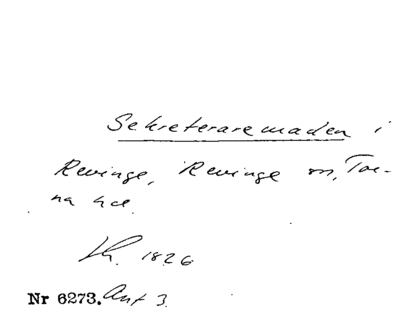 Sekreteraremaden i
Revinge, Revinge sn, Tor-
na hd.
Lh. 1826
Nr 6273. Ant 3.